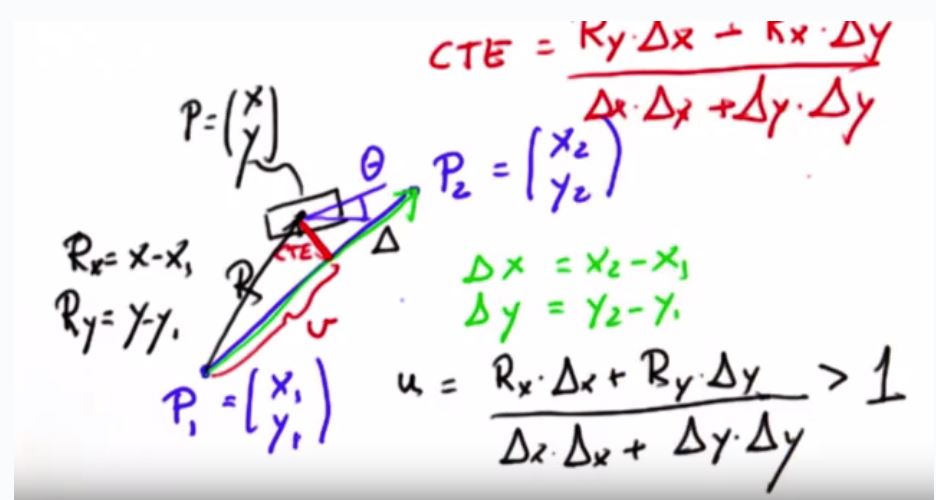 CTE = Ry·Δx - Rx·Δy
Δx·Δx + Δy·Δy
P = (x
y)
θ
P₂ = (x₂
y₂)
CTE
Δ
Rx = x-x₁
R
Δx = x₂-x₁
Ry = y-y₁
Δy = y₂-y₁
u
P₁ = (x₁
y₁)
u = Rx·Δx + Ry·Δy > 1
Δx·Δx + Δy·Δy